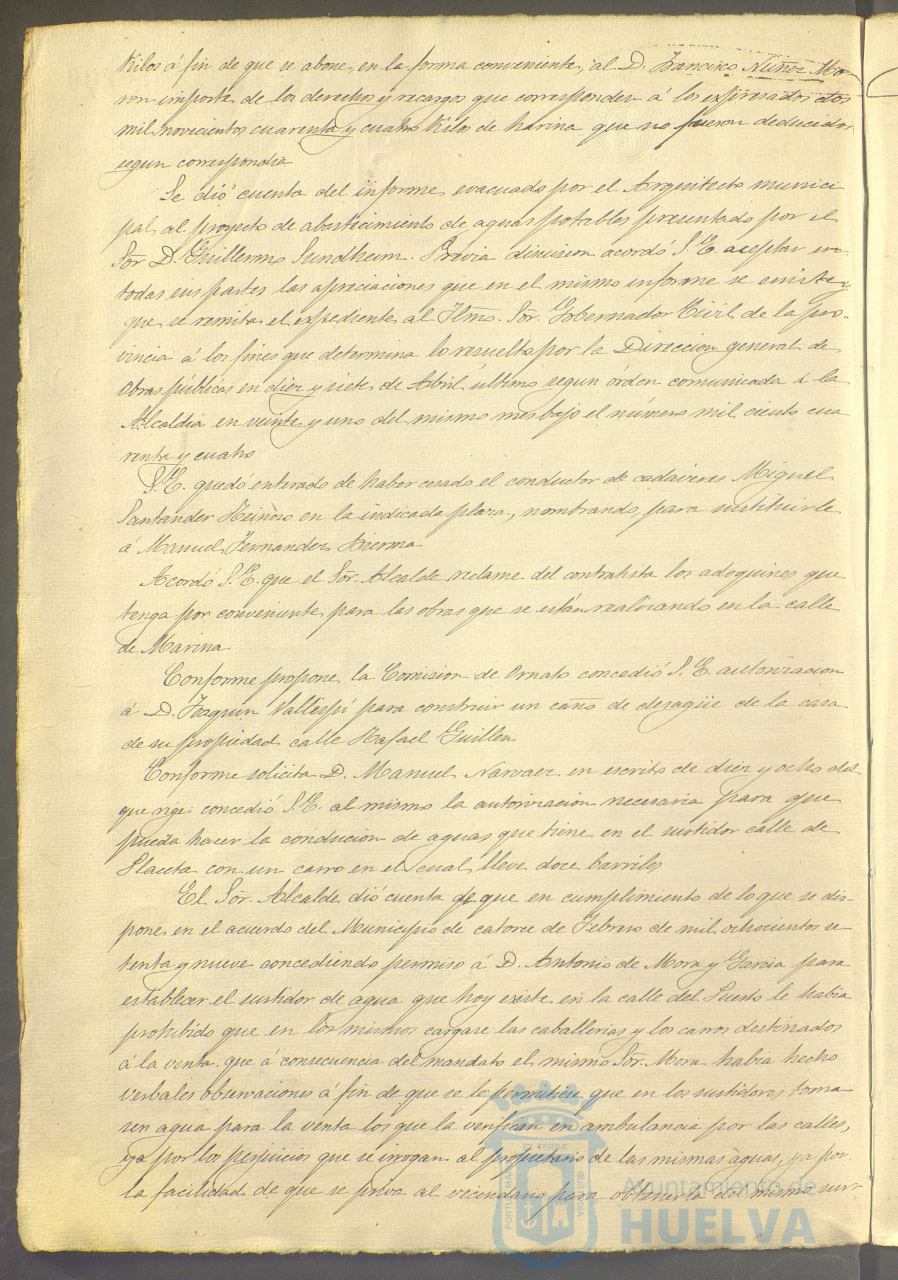 Kilos á fin de que se abone, en la forma conveniente, al D. Francisco Nuñez Mo-
ron importe de los derechos y recargos que corresponden á los expresados dos
mil novecientos cuarenta y cuatro Kilos de harina que no fueron deducidos
segun correspondia
Se dió cuenta del informe evacuado por el Arquitecto munici
pal, al proyecto de abastecimiento de aguas potables presentado por el
Sor. D. Guillermo Sundheim. Previa discusion acordó S.E. aceptar en
todas sus partes las apreciaciones que en el mismo informe se emiten y
que se remita el expediente al Iltmo. Sor. Gobernador Civil de la pro-
vincia á los fines que determina lo resuelto por la Direccion general de
Obras públicas en diez y siete de Abril último segun órden comunicada á la
Alcaldia en veinte y uno del mismo mes bajo el número mil ciento cua
renta y cuatro
S.E. quedó enterado de haber cesado el conductor de cadáveres Miguel
Santander en la indicada plaza, nombrando, para sustituirle
á Manuel Fernandez
Acordó S.E. que el Sor. Alcalde reclame del contratista los adoquines que
tenga por conveniente para las obras que se están realizando en la calle
de Marina
Conforme propone la Comision de Ornato concedió S.E. autorizacion
á D. Joaquin Vallespí para construir un caño de desagüe de la casa
de su propiedad calle Rafael Guillen
Conforme solicita D. Manuel Narvaez en escrito de diez y ocho del
que rige concedió S.E. al mismo la autorizacion necesaria para que
pueda hacer la conducion de aguas que tiene en el surtidor calle de
Placeta con un carro en el cual lleve doce barriles
El Sor. Alcalde dió cuenta de que en cumplimiento de lo que se dis-
pone en el acuerdo del Municipio de catorce de Febrero de mil ochocientos se
tenta y nueve concediendo permiso á D. Antonio de Mora y Garcia para
establecer el surtidor de agua que hoy existe en la calle del Puerto le habia
prohibido que en los mismos cargase las caballerias y los carros destinados
á la venta. que á consecuencia del mandato el mismo Sor. Mora habia hecho
verbales observaciones á fin de que se le permitiese que en los surtidores toma
sen agua para la venta los que la verifican en ambulancia por las calles,
ya por los perjuicios que se irrogan al propietario de las mismas aguas, ya por
la facilidad de que se priva al vecindario para obtenerla del mismo sur-
Ayuntamiento de
HUELVA